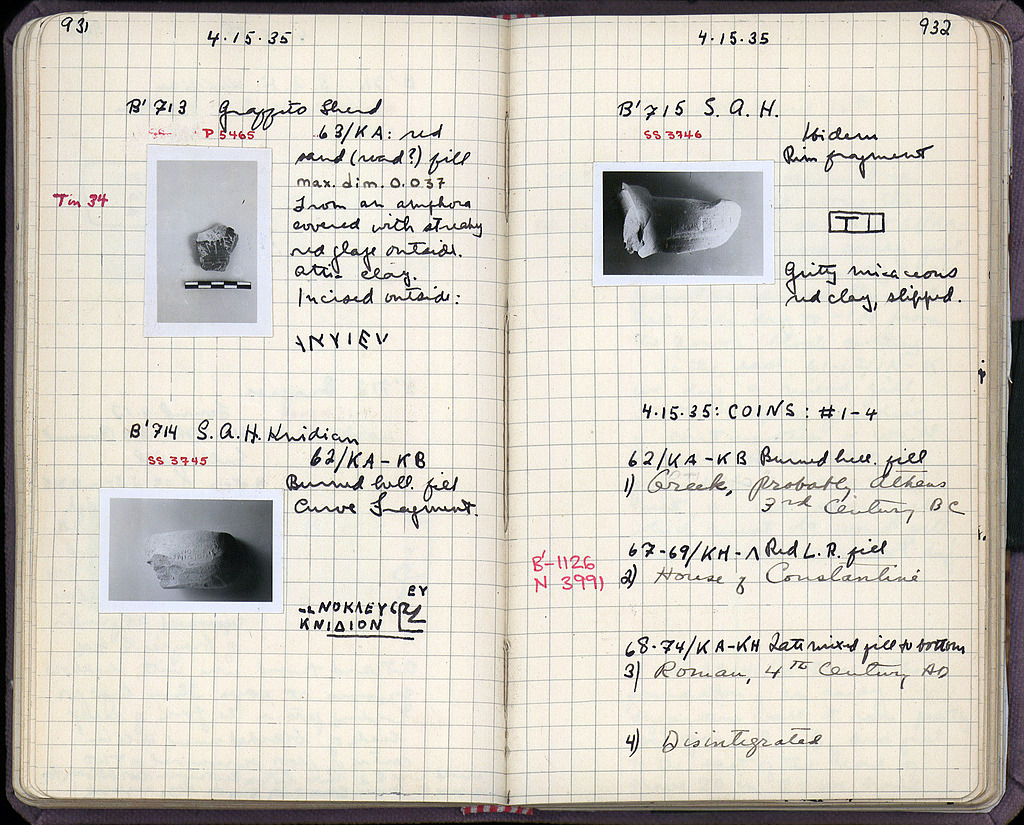 931
4·15·35
B'713 Graffito Sherd
P 5465
63/KA: red
sand (road?) fill
max. dim. 0.037
Tin 34
From an amphora
covered with streaky
red glaze outside.
Attic clay.
Incised outside:
B'714 S.A.H. Knidian
SS 3745
62/KA-KB
Burned hell. fill
Curve Fragment.
EY
ΝΟΚΛΕΥС
ΚΝΙΔΙΟΝ
932
4·15·35
B'715 S.A.H.
SS 3746
Ibidem
Rim fragment
Gritty micaceous
red clay, slipped.
4·15·35: COINS: #1-4
62/KA-KB Burned hell. fill
1) Greek, Probably Athens
3rd Century BC
67-69/KH-Λ Red L.R. fill
B'-1126
N 3991
2) House of Constantine
68-74/KA-KH Late mixed fill to bottom
3) Roman, 4th Century AD
4) Disintegrated